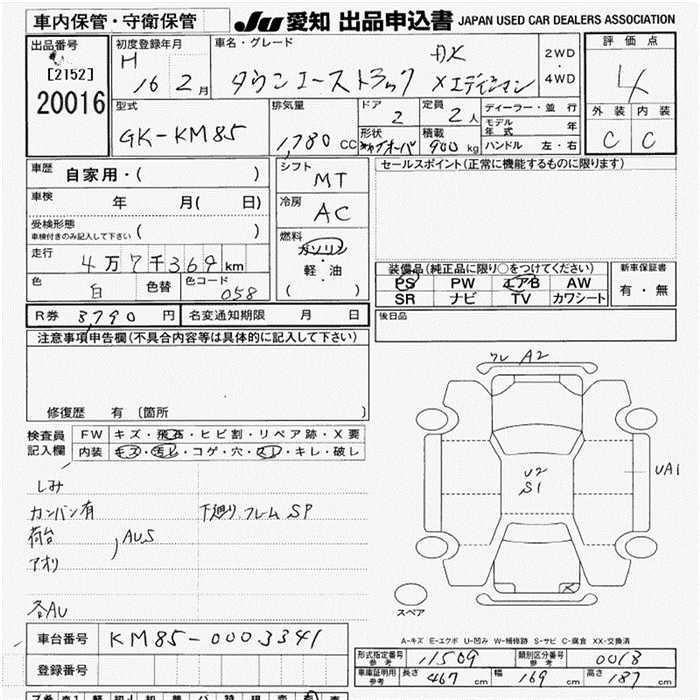 車内保管・守衛保管
JU 愛知 出品申込書 JAPAN USED CAR DEALERS ASSOCIATION
出品番号
[2152]
20016
初度登録年月
H 16 2月
車名・グレード
DX
タウンエーストラック Xエディション
2WD
・
4WD
評価点
4
外装 内装
C C
型式
GK-KM85
排気量
1,780 CC
ドア
2
定員
2人
形状
積載
900 kg
ディーラー・並行
モデル年式 年
ハンドル 左・右
車歴 自家用・( )
車検 年 月( 日)
受検形態
車検付きのみ記入して下さい ( )
走行
4万7千369km
色 白 色替 色コード 058
シフト
MT
冷房
AC
燃料
ガソリン
・
軽・油
( )
セールスポイント(正常に機能するものに限ります)
装備品(純正品に限り○をつけてください)
PS PW エアB AW
SR ナビ TV カワシート
新車保証書
有・無
R券 8,790 円 名変通知期限 月 日
後日品
注意事項申告欄(不具合内容等は具体的に記入して下さい)
修復歴 有 〔箇所 〕
検査員
記入欄
FW キズ・飛石・ヒビ割・リペア跡・X要
内装 キズ・汚レ・コゲ・穴・スレ・キレ・破レ
しみ
カンバン有 下廻り、フレーム SP
荷台
アオリ
AUS
各AU
ワレ A2
U2
S1
UA1
X
スペア
A-キズ E-エクボ U-凹み W-補修跡 S-サビ C-腐食 XX-交換済
車台番号 KM85-0003341
登録番号
形式指定番号
参考 11509
類別区分番号
参考 0018
車庫証明用
参考
長さ 467 cm 幅 169 cm 高さ 187 cm